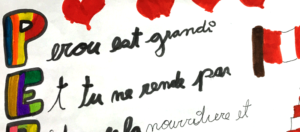 Perou est grandi
Et tu ne rende pas
la nourritiere et